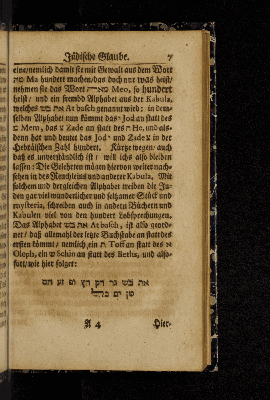 Jüdische Glaube. 7
eine/nemlich damit sie mit Gewalt aus dem Wort
מה Ma hundert machen/das doch nur was heist/
nehmen sie das Wort מאה Meo, so hundert
heist/ und ein frembd Alphabet aus der Kabula,
welches את בש At basch genannt wird: in dem-
selben Alphabet nun kümmt das Jod an statt des
מ Mem, das צ Zade an statt des ה He, und als-
denn hat und deutet das Jod und Zade צ in der
Hebräischen Zahl hundert. Kürtze wegen/ auch
daß es unverständlich ist / will ichs also bleiben
lassen: Die Gelehrten mögen hiervon weiter nach-
sehen in des Reuchleins und anderer Kabula. Mit
solchem und dergleichen Alphabet treiben die Ju-
den gar viel wunderlicher und seltzamer Stück und
mysteria, schreiben auch in andern Büchern und
Kabulen viel von den hundert Lobsprechungen.
Das Alphabet את בש At basch, ist also geord-
net/ daß allemahl der letzte Buchstabe an statt des
ersten kömmt/ nemlich ein ת Toff an statt des א
Oloph, ein ש Schin an statt des Beths, und also
fort/ wie hier folget:
את בש גר דק הץ וף זע חס
טן ים כל
A 4 Hier-